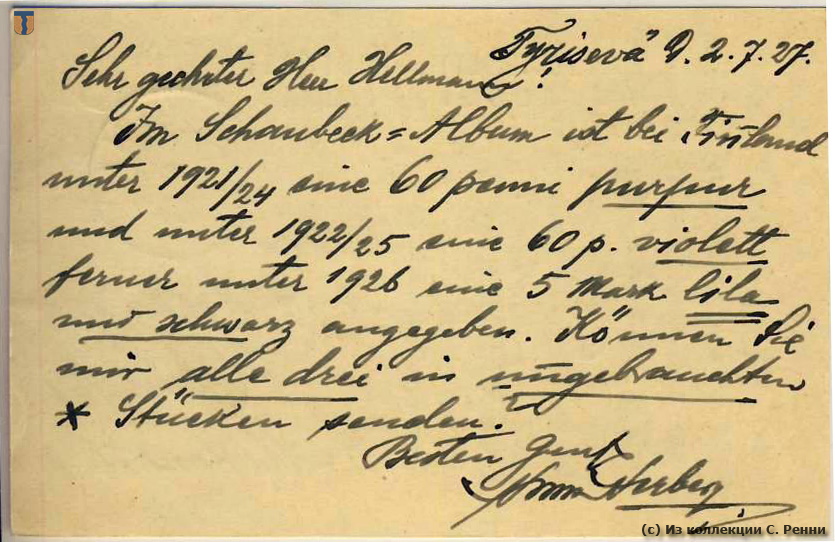 Tyrisevä D. 2.7.27.
Sehr geehrter Herr Hellmann!
Im Schaubeck=Album ist bei Finland
unter 1921/24 eine 60 penni purpur
und unter 1922/25 eine 60 p. violett
ferner unter 1926 eine 5 Mark lila
und schwarz angegeben. Können Sie
mir alle drei in ungebrauchten
* Stücken senden?
Besten Gruß
(c) Из коллекции С. Ренни